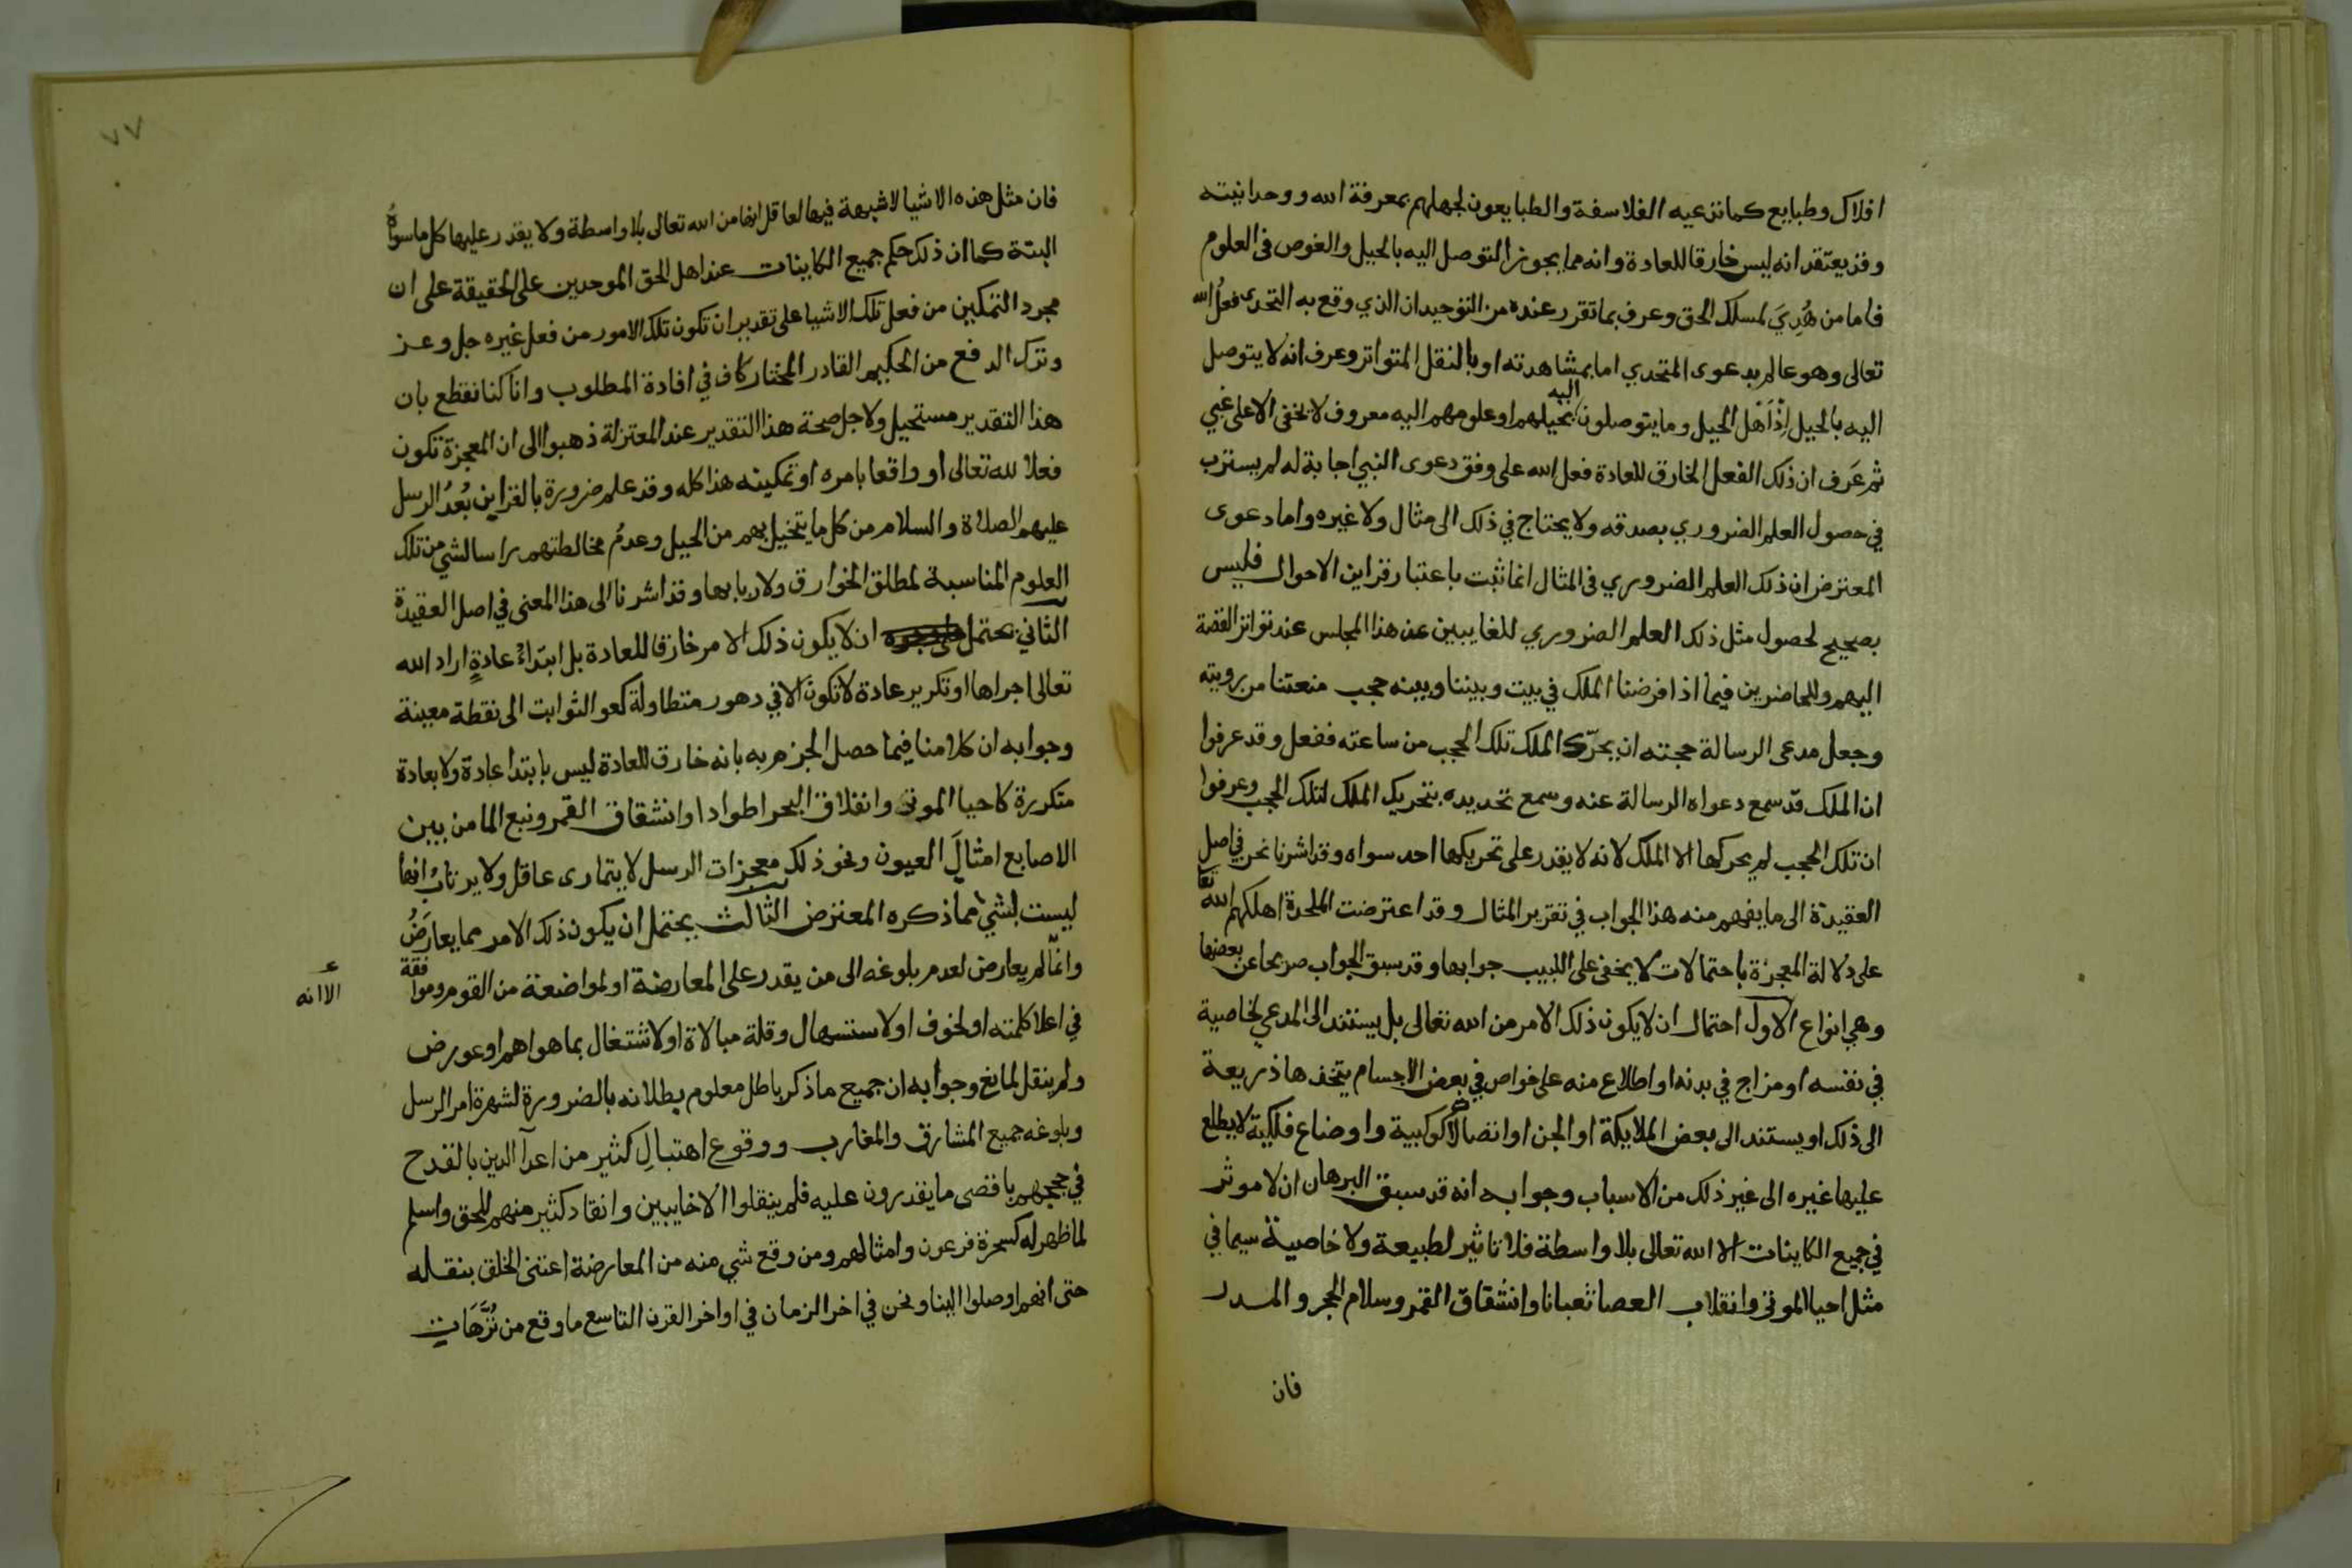 افلاك وطبايع كما تزعيه الفلاسفة والطبايعون لجهلهم بمعرفة الله ووحدانيته
وقد يعتقد انه ليس خارقا للعادة وانه مما يجوز التوصل اليه بالحيل والغوص في العلوم
فاما من هُدِيَ لمسلك الحق وعرف بما تقرر عنده من التوحيد ان الذي وقع به التحدى فعلُ الله
تعالى وهو عالم بدعوى المتحدي اما بمشاهدته او بالنقل المتواتر وعرف انه لا يتوصل
اليه بالحيل اِذْ اَهْل الحيل وما يتوصلون اليه بحيلهم او علومهم اليه معروف لا يخفى الا على غبي
ثم عَرَف ان ذلك الفعل الخارق للعادة فعل الله على وفق دعوى النبي اجابة له لم يسترب
في حصول العلم الضروري بصدقه ولا يحتاج في ذلك الى مثال ولا غيره واما دعوى
المعترض ان ذلك العلم الضروري في المثال انما ثبت باعتبار قراين الاحوال فليس
بصحيح لحصول مثل ذلك العلم الضروري للغايبين عن هذا المجلس عند تواتر القصة
اليهم وللحاضرين فيما اذا فرضنا الملك في بيت وبيننا وبينه حجب منعتنا من رويته
وجعل مدعى الرسالة حجته ان يحرّك الملك تلك الحجب من ساعته ففعل وقد عرفوا
ان الملك قد سمع دعواه الرسالة عنه وسمع تحديده بتحريك الملك لتلك الحجب وعرفوا
ان تلك الحجب لم يحركها الا الملك لانه لا يقدر على تحريكها احد سواه وقد اشرنا نحن في اصل
العقيدة الى ما يفهم منه هذا الجواب في تقرير المثال وقد اعترضت الملحدة اهلكهم الله تعا
على دلالة المعجزة باحتمالات لا يخفى على اللبيب جوابها وقد سبق الجواب صريحا عن بعضها
وهي انواع الاول احتمال ان لا يكون ذلك الامر من الله تعالى بل يستند الى المدعي لخاصية
في نفسه او مزاج في بدنه او اطلاع منه على خواص في بعض الاجسام يتخذها ذريعة
الى ذلك او يستند الى بعض الملايكة او الجن او اتصالات كوكبية واوضاع فلكية لا يطلع
عليها غيره الى غير ذلك من الاسباب وجوابه انه قد سبق البرهان ان لا موثر
في جميع الكاينات الا الله تعالى بلا واسطة فلا تاثير لطبيعة ولا خاصية سيما في
مثل احيا الموتى وانقلاب العصا ثعبانا وانشقاق القمر وسلام الحجر والمدر
فان
٧٧
فان مثل هذه الاشيا لا شبهة فيها لعاقل انها من الله تعالى بلا واسطة ولا يقدر عليها كل ما سواهُ
البتة كما ان ذلك حكم جميع الكاينات عند اهل الحق الموحدين على الحقيقة على ان
مجرد التمكين من فعل تلك الاشيا على تقدير ان تكون تلك الامور من فعل غيره جل وعز
وترك الدفع من الحكيم القادر المختار كاف في افادة المطلوب وان كنا نقطع بان
هذا التقدير مستحيل ولاجل صحة هذا التقدير عند المعتزلة ذهبوا الى ان المعجزة تكون
فعلا لله تعالى او واقعا بامره او تمكينه هذا كله وقد علم ضرورة بالقراين بُعدُ الرسل
عليهم الصلاة والسلام من كل ما يتخيل بهم من الحيل وعدمُ مخالطتهم راسا لشي من تلك
العلوم المناسبة لمطلق الخوارق ولاربابها وقد اشرنا الى هذا المعنى في اصل العقيدة
الثاني يحتمل ان لا يكون ذلك الامر خارقا للعادة بل ابتداءُ عادةٍ اراد الله
تعالى اجراها او تكرير عادة لا تكون الا في دهور متطاولة كعو الثوابت الى نقطة معينة
وجوابه ان كلامنا فيما حصل الجزم به بانه خارق للعادة ليس بابتدا عادة ولا بعادة
متكررة كاحيا الموتى وانفلاق البحر اطوادا وانشقاق القمر ونبع الما من بين
الاصابع امثالَ العيون ونحو ذلك معجزات الرسل لا يتمارى عاقل ولا يرتابُ انها
ليست بشيء مما ذكره المعترض الثالث يحتمل ان يكون ذلك الامر مما يعارَضُ
وانما لم يعارض لعدم بلوغه الى من يقدر على المعارضة او لمواضعة من القوم وموافقة
ع
الا انه
في اعلا كلمته او لخوف او لاستسهال وقلة مبالاة او لاشتغال بما هو اهم او عورض
ولم ينقل لمانع وجوابه ان جميع ما ذكر باطل معلوم بطلانه بالضرورة لشهرة امر الرسل
وبلوغه جميع المشارق والمغارب ووقوع اهتبالِ كثير من اعدآ الدين بالقدح
في حججهم باقصى ما يقدرون عليه فلم ينقلوا الا خايبين وانقاد كثير منهم للحق واسلم
لما ظهر له كسحرة فرعون وامثالهم ومن وقع شي منه من المعارضة اعتنى الخلق بنقله
حتى انهم اوصلوا الينا ونحن في اخر الزمان في اواخر القرن التاسع ما وقع من تُرَّهَاتِ